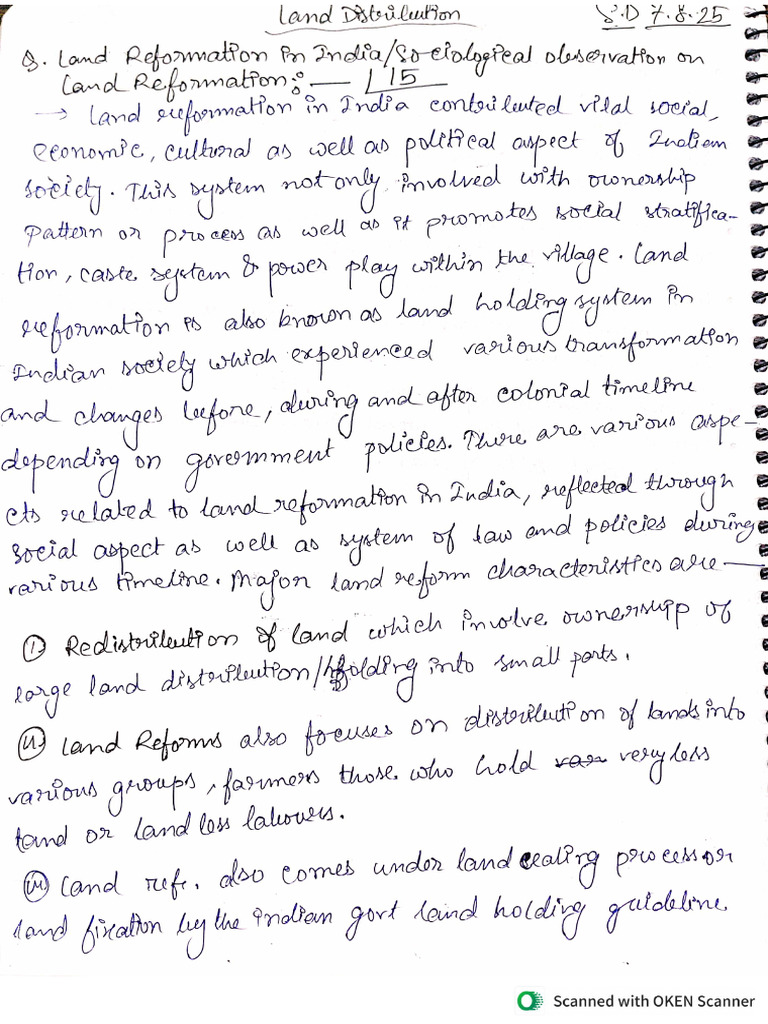 Land Distribution
S.D 7.8.25
Q. Land Reformation in India/Sociological observation on
Land Reformation:— 15
→ Land reformation in India contributed vital social,
economic, cultural as well as political aspect of Indian
society. This system not only involved with ownership
pattern or process as well as it promotes social stratifica-
tion, caste system & power play within the village. Land
reformation is also known as land holding system in
Indian society which experienced various transformation
and changes before, during and after colonial timeline
depending on government policies. There are various aspe-
cts related to land reformation in India, reflected through
social aspect as well as system of law and policies during
various timeline. Major land reform characteristics are—
(i) Redistribution of land which involve ownership of
large land distribution/holding into small parts.
(ii) Land Reforms also focuses on distribution of lands into
various groups, farmers those who hold very less
land or land less labours.
(iii) Land ref. also comes under land cealing process or
land fixation by the indian govt land holding guideline
Scanned with OKEN Scanner